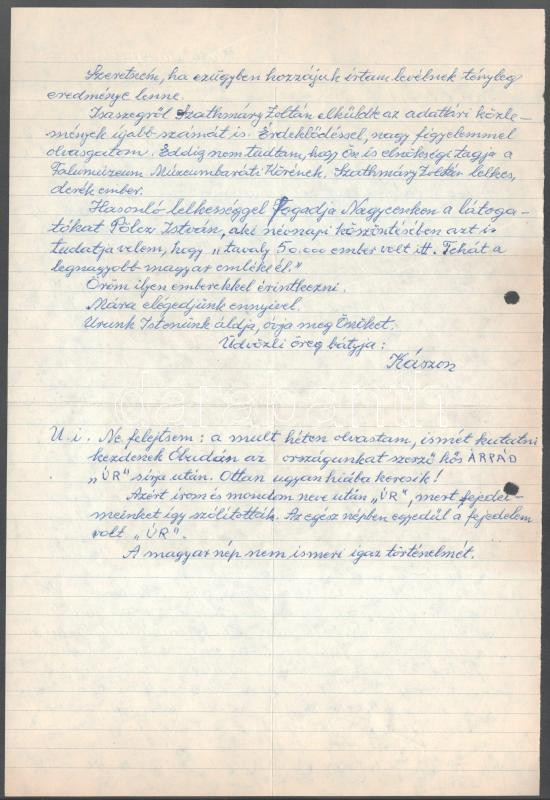 Szeretném, ha ezügyben hozzájuk írtam levélnek tényleg
eredménye lenne.
Isaszegről Szathmáry Zoltán elküldte az adattári közle-
mények újabb számát is. Érdeklődéssel, nagy figyelemmel
olvasgatom. Eddig nem tudtam, hogy Ön is elnökségi tagja a
Falumúzeum Múzeumbaráti Körének. Szathmáry Zoltán lelkes,
derék ember.
Hasonló lelkességgel fogadja Nagycenken a látoga-
tókat Pölcz István, aki névnapi köszöntésében azt is
tudatja velem, hogy „tavaly 50.000 ember volt itt. Tehát a
legnagyobb magyar emléke él."
Öröm ilyen emberekkel érintkezni.
Mára elégedjünk ennyivel.
Urunk Istenünk áldja, óvja meg Önöket.
Üdvözli öreg bátyja:
Kászon
U.i. Ne felejtsem: a mult héten olvastam, ismét kutatni
kezdenek Óbudán az országunkat szerző hős ÁRPÁD
„ÚR" sírja után. Ottan ugyan hiába keresik!
Azért irom és mondom neve után „ÚR", mert fejedel-
meinket így szólították. Az egész népben egyedül a fejedelem
volt „ÚR".
A magyar nép nem ismeri igaz történelmét.
darabanth